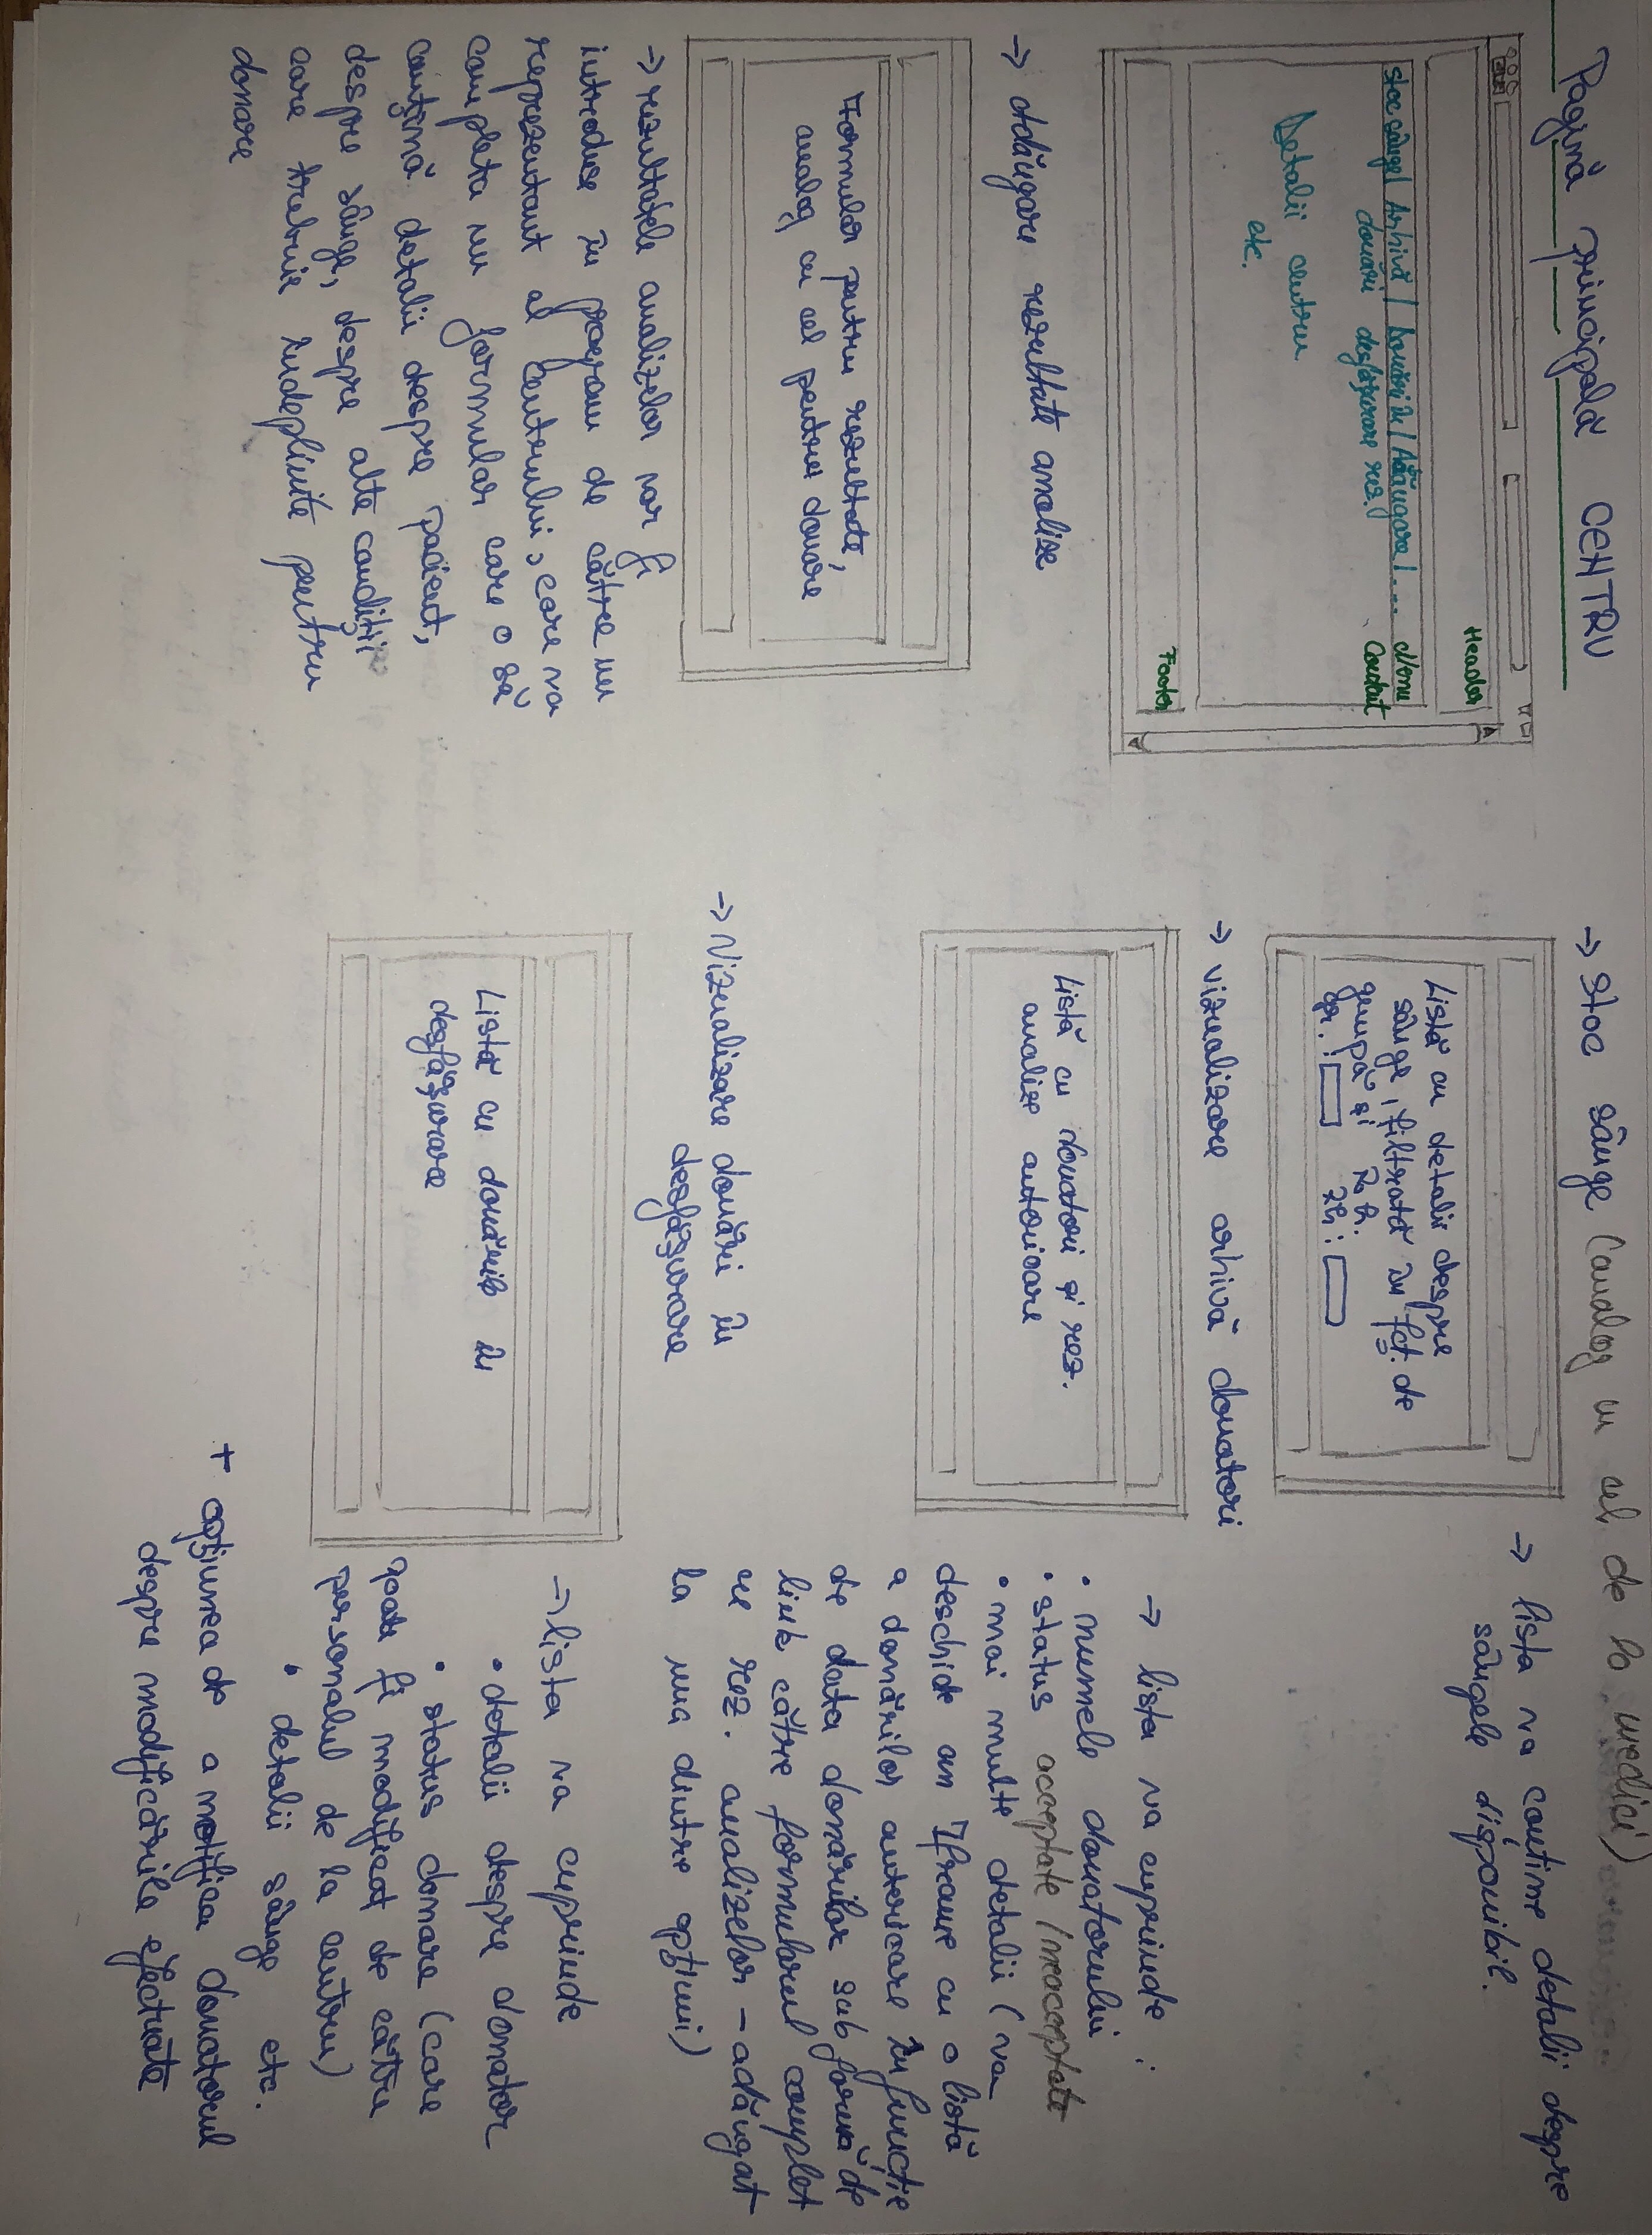 Pagină principală CENTRU
Header
stoc sânge | Arhivă | Donări în | Adăugare | ... Menu
donări desfășurare rez. Content
Detalii centru
etc.
Footer
-> adăugare rezultate analize
Formular pentru rezultate,
analog cu cel pentru donare
-> rezultatele analizelor vor fi
introduse în program de către un
reprezentant al Centrului, care va
completa un formular care o să
conțină detalii despre pacient,
despre sânge, despre alte condiții
care trebuie îndeplinite pentru
donare
-> Stoc sânge (analog cu cel de la medici)
Listă cu detalii despre
sânge, filtrată în fct. de
grupă și Rh.
gr.: Rh:
-> lista va conține detalii despre
sângele disponibil.
-> vizualizare arhivă donatori
Listă cu donatori și rez.
analize anterioare
-> lista va cuprinde:
• numele donatorului
• status acceptate/neacceptate
• mai multe detalii (va
deschide un IFrame cu o listă
a donărilor anterioare în funcție
de data donărilor sub formă de
link către formularul complet
cu rez. analizelor - adăugat
la una dintre opțiuni)
-> Vizualizare donări în
desfășurare
Listă cu donările în
desfășurare
-> lista va cuprinde
• detalii despre donator
• status donare (care
poate fi modificat de către
personalul de la centru)
• detalii sânge etc.
+ opțiunea de a notifica donatorul
despre modificările efectuate